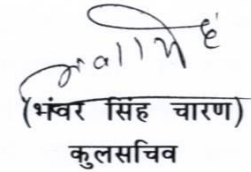 (भंवर सिंह चारण)
कुलसचिव